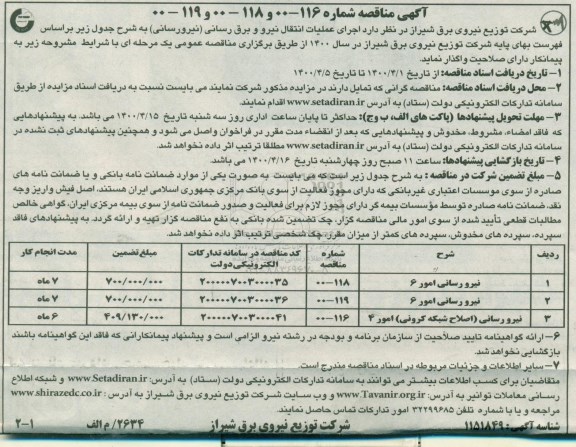 آگهی مناقصه شماره ۱۱۶-۰۰ و ۱۱۸-۰۰ و ۱۱۹-۰۰
شرکت توزیع نیروی برق شیراز در نظر دارد اجرای عملیات انتقال نیرو و برق رسانی (نیرورسانی) به شرح جدول زیر براساس
فهرست بهای پایه شرکت توزیع نیروی برق شیراز در سال ۱۴۰۰ از طریق برگزاری مناقصه عمومی یک مرحله ای با شرایط مشروحه زیر به
پیمانکار دارای صلاحیت واگذار نماید.
۱- تاریخ دریافت اسناد مناقصه: از تاریخ ۱۴۰۰/۴/۱ تا تاریخ ۱۴۰۰/۴/۵
۲- محل دریافت اسناد مناقصه: مناقصه گرانی که تمایل دارند در مزایده مذکور شرکت نمایند می بایست نسبت به دریافت اسناد مزایده از طریق
سامانه تدارکات الکترونیکی دولت (ستاد) به آدرس www.setadiran.ir اقدام نمایند
۳- مهلت تحویل پیشنهادها (پاکت های الف، ب و ج): حداکثر تا پایان ساعت اداری روز سه شنبه تاریخ ۱۴۰۰/۴/۱۵ می باشد. به پیشنهادهایی
که فاقد امضاء، مشروط، مخدوش و پیشنهادهایی که بعد از انقضاء مدت مقرر در فراخوان واصل می شود و همچنین پیشنهادهای ثبت نشده در
سامانه تدارکات الکترونیکی دولت (ستاد) به آدرس www.setadiran.ir مطلقا ترتیب اثر داده نخواهد شد.
۴- تاریخ بازگشایی پیشنهادها: ساعت ۱۱ صبح روز چهارشنبه تاریخ ۱۴۰۰/۴/۱۶ می باشد.
۵- مبلغ تضمین شرکت در مناقصه: به شرح جدول زیر است که می بایست به صورت یکی از موارد ضمانت نامه بانکی و یا ضمانت نامه های
صادره از سوی موسسات اعتباری غیربانکی که دارای مجوز فعالیت از سوی بانک مرکزی جمهوری اسلامی ایران هستند، اصل فیش واریز وجه
نقد، ضمانت نامه صادره توسط مؤسسات بیمه گر دارای مجوز لازم برای فعالیت و صدور ضمانت نامه از سوی بیمه مرکزی ایران، گواهی خالص
مطالبات قطعی تأیید شده از سوی امور مالی مناقصه گزار، چک تضمین شده بانکی به نفع مناقصه گزار تهیه و ارائه گردد. به پیشنهادهای فاقد
سپرده، سپرده های مخدوش، سپرده های کمتر از میزان مقرر، چک شخصی ترتیب اثر داده نخواهد شد.
ردیف شرح شماره مناقصه کد مناقصه در سامانه تدارکات الکترونیکی دولت مبلغ تضمین مدت انجام کار
۱ نیرو رسانی امور ۶ ۱۱۸-۰۰ ۲۰۰۰۰۰۷۰۰۳۰۰۰۰۳۵ ۷۰۰/۰۰۰/۰۰۰ ۷ ماه
۲ نیرو رسانی امور ۶ ۱۱۹-۰۰ ۲۰۰۰۰۰۷۰۰۳۰۰۰۰۳۶ ۷۰۰/۰۰۰/۰۰۰ ۷ ماه
۳ نیرو رسانی (اصلاح شبکه کرونی) امور ۴ ۱۱۶-۰۰ ۲۰۰۰۰۰۷۰۰۳۰۰۰۰۴۱ ۴۰۹/۱۳۰/۰۰۰ ۶ ماه
۶- ارائه گواهینامه تایید صلاحیت از سازمان برنامه و بودجه در رشته نیرو الزامی است و پیشنهاد پیمانکارانی که فاقد این گواهینامه باشند
بازگشایی نخواهد شد.
۷- سایر اطلاعات و جزئیات مربوطه در اسناد مناقصه مندرج است.
متقاضیان برای کسب اطلاعات بیشتر می توانند به سامانه تدارکات الکترونیکی دولت (ستاد) به آدرس: www.Setadiran.ir و شبکه اطلاع
رسانی معاملات توانیر به آدرس: www.Tavanir.org.ir و وب سایت شرکت توزیع نیروی برق شیراز به آدرس: www.shirazedc.co.ir
مراجعه و یا با شماره تلفن ۳۲۲۹۹۶۸۵ امور تدارکات تماس حاصل نمایند.
شناسه آگهی: ۱۱۵۱۸۴۹ شرکت توزیع نیروی برق شیراز ۲۶۳۴/م الف ۲-۱